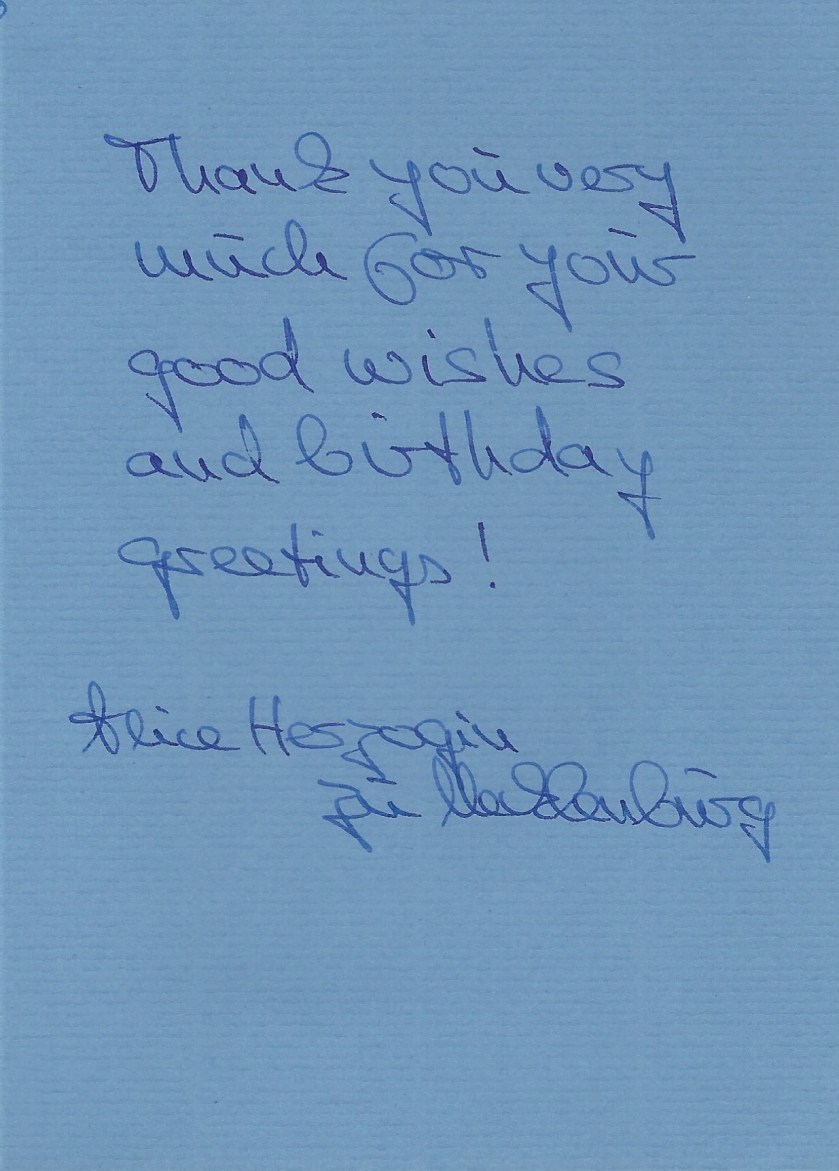 Thank you very
much for your
good wishes
and birthday
greetings!
Alice Herzogin
zu Mecklenburg